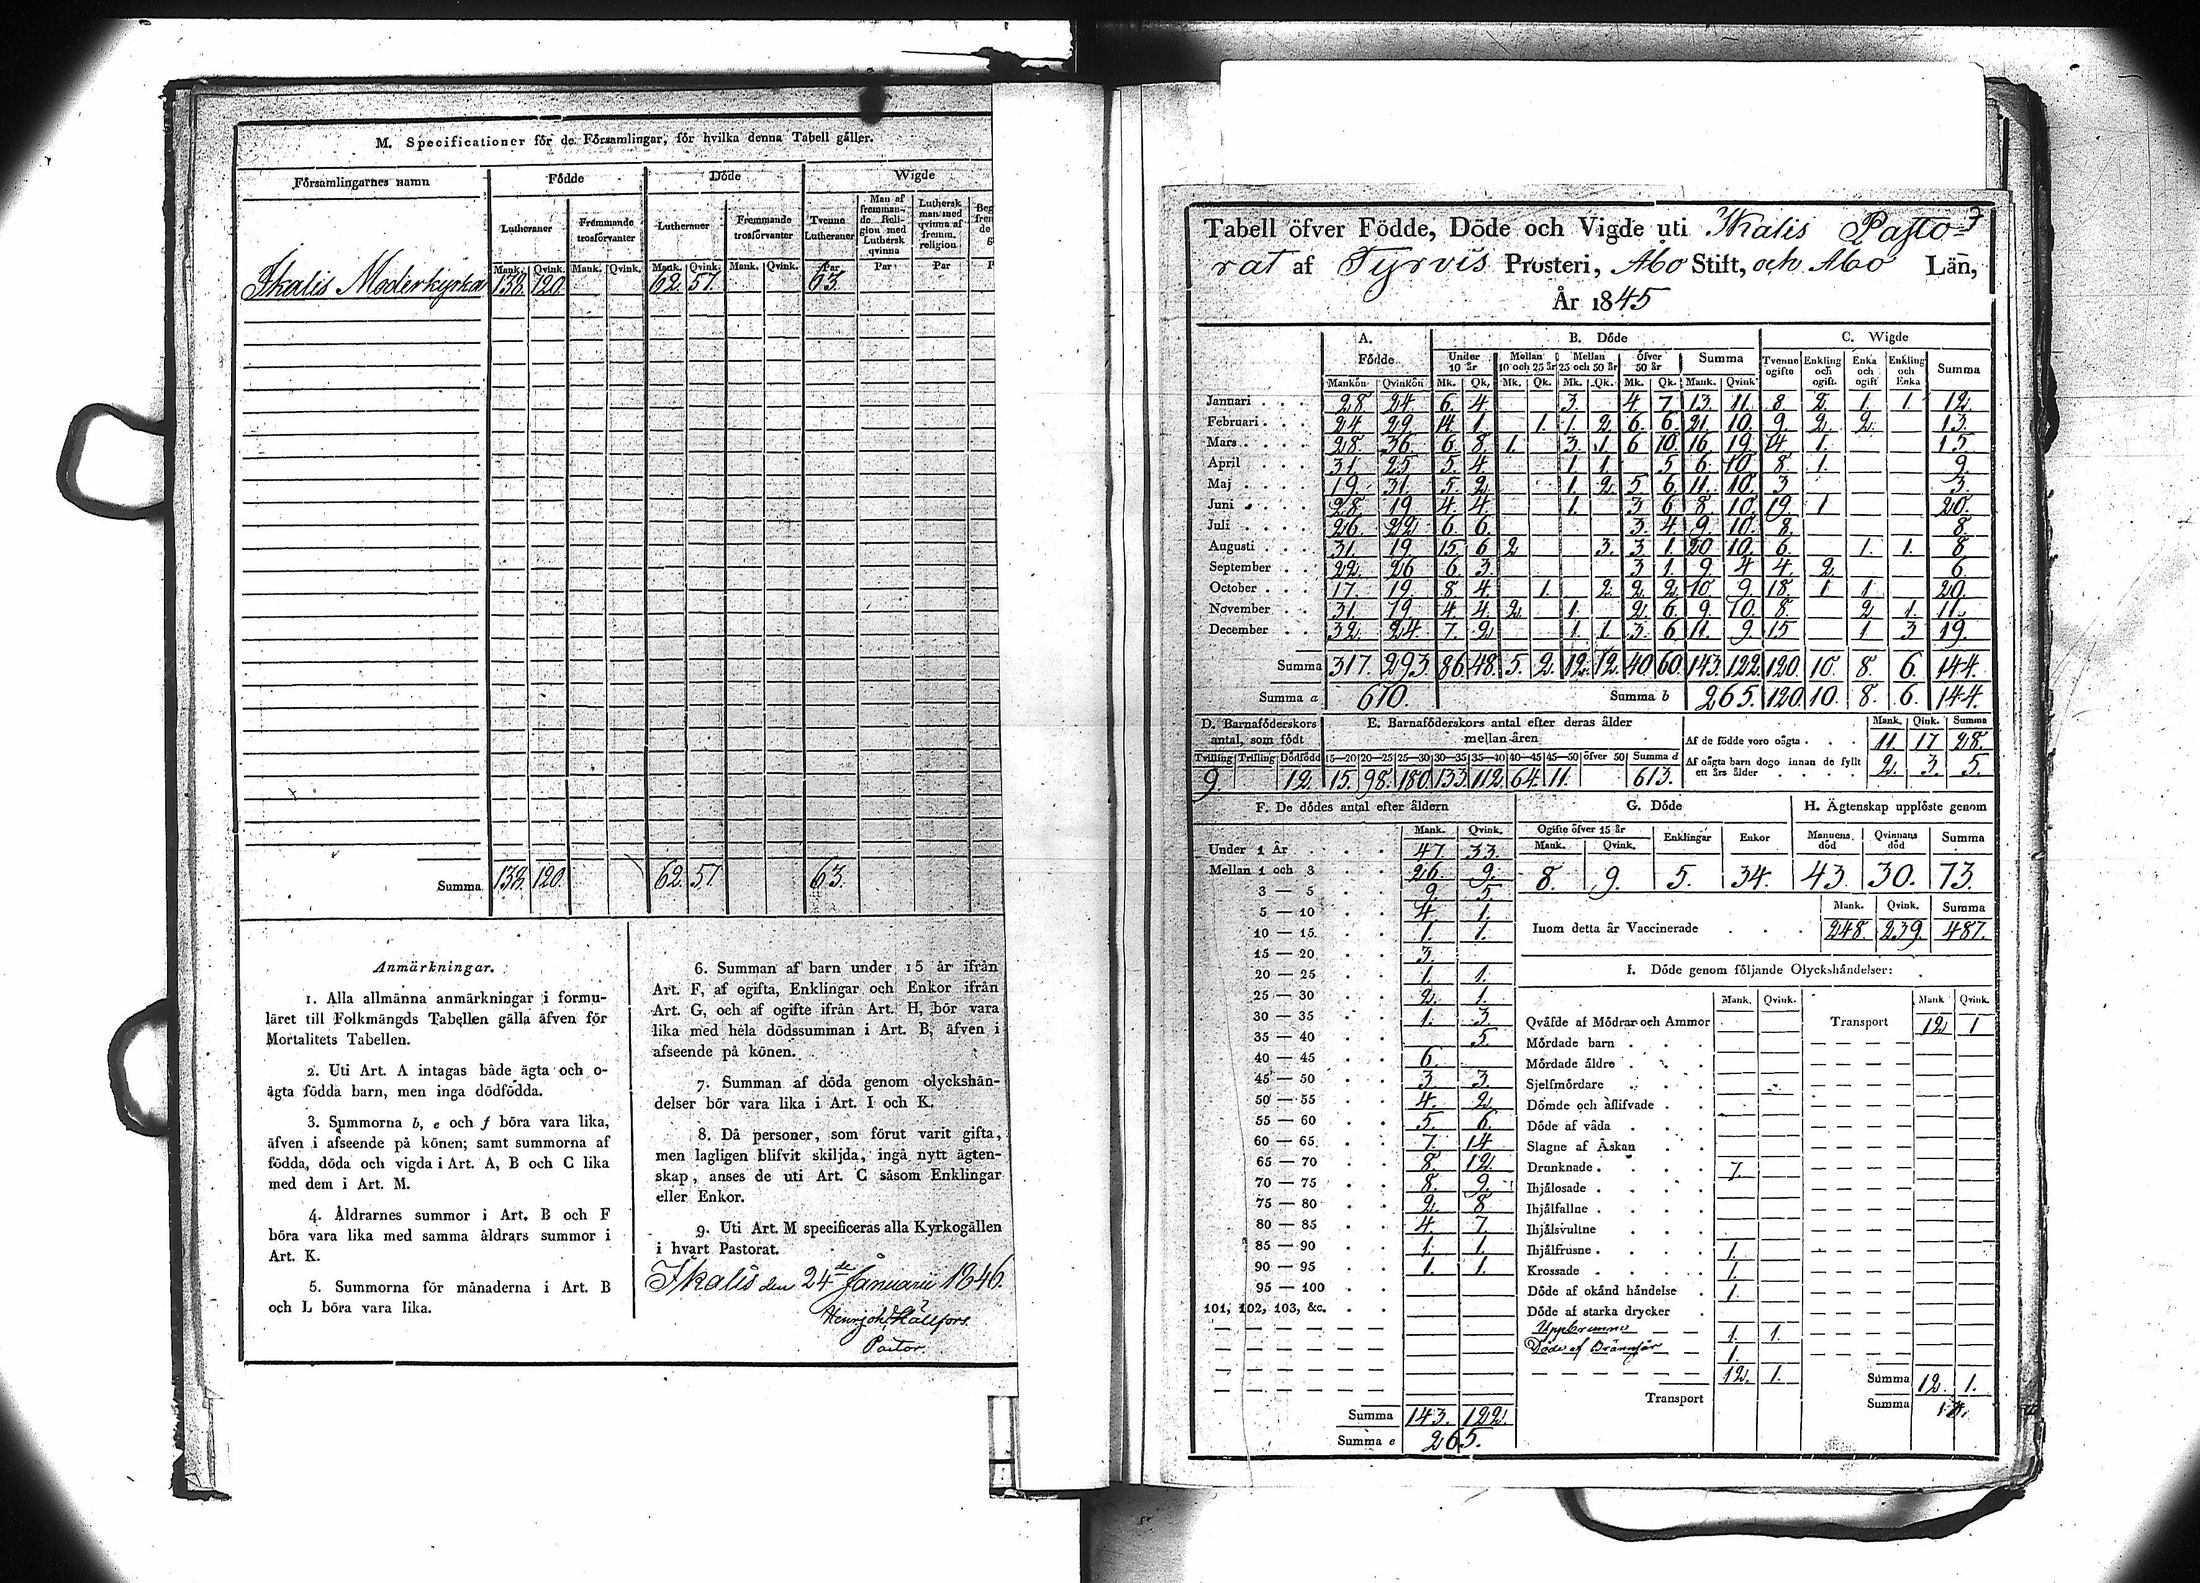 M. Specificationer för de Församlingar, för hvilka denna Tabell gäller.
Församlingarnes namn Födde Döde Wigde
Lutheraner Främmande trosförvanter Lutheraner Fremmande trosförvanter Tvenne Lutheraner Man af fremmande Religion med Luthersk qvinna Luthersk man med qvinna af fremm. religion
Mank. Qvink. Mank. Qvink. Mank. Qvink. Mank. Qvink. Par Par Par
Ikalis Moderkyrka 138. 120. 62. 57. 63
Summa 138. 120. 62. 57. 63
Anmärkningar.
1. Alla allmänna anmärkningar i formu-
läret till Folkmängds Tabellen gälla äfven för
Mortalitets Tabellen.
2. Uti Art. A intagas både ägta och o-
ägta födda barn, men inga dödfödda.
3. Summorna b, e och f böra vara lika,
äfven i afseende på könen; samt summorna af
födda, döda och vigda i Art. A, B och C lika
med dem i Art. M.
4. Åldrarnes summor i Art. B och F
böra vara lika med samma åldrars summor i
Art. K.
5. Summorna för månaderna i Art. B
och L böra vara lika.
6. Summan af barn under 15 år ifrån
Art. F, af ogifta, Enklingar och Enkor ifrån
Art. G, och af ogifte ifrån Art. H, bör vara
lika med hela dödssumman i Art. B, äfven i
afseende på könen.
7. Summan af döda genom olyckshän-
delser bör vara lika i Art. I och K.
8. Då personer, som förut varit gifta,
men lagligen blifvit skiljda, ingå nytt ägten-
skap, anses de uti Art. C såsom Enklingar
eller Enkor.
9. Uti Art. M specificeras alla Kyrkogällen
i hvart Pastorat.
Ikalis den 24de Januarii 1846.
Pastor
Tabell öfver Födde, Döde och Vigde uti Ikalis Pasto=
rat af Tyrvis Prosteri, Åbo Stift, och Åbo Län,
År 1845
A. Födde B. Döde C. Wigde
Under 10 år Mellan 10 och 25 år Mellan 25 och 50 år Öfver 50 år Summa Tvenne ogifte Enkling och ogift. Enka och ogift Enkling och Enka Summa
Mankön Qvinkön Mk. Qk. Mk. Qk. Mk. Qk. Mk. Qk. Mank. Qvink.
Januari 28. 24. 6. 4. 3. 4 7 13. 11. 8 2. 1. 1. 12.
Februari 24 29. 14. 1. 1. 1. 2. 6. 6. 21. 10. 9 2. 2. 13.
Mars 28. 36. 6 8. 1. 3. 1 6 10. 16 19 14 1. 15.
April 31. 25 5. 4. 1. 1. 5 6. 10 8. 1. 9.
Maj 19. 31. 5 2. 1. 2. 5 6 11. 10. 3 3.
Juni 28. 19 4. 4. 1. 3 6 8. 10. 19 1 20.
Juli 26. 22 6 6. 3. 4 9. 10. 8. 8.
Augusti 31. 19. 15. 6 2 3. 3 1. 20 10. 6. 1. 1. 8
September 22. 26 6 3. 3 1. 9. 4 4. 2. 6.
October 17. 19. 8. 4. 1. 2. 2 2. 10. 9. 18. 1 1 20.
November 31. 19 4. 4 2. 1. 2. 6. 9. 10. 8. 2 1. 11.
December 32. 24. 7. 2. 1. 1. 3. 6 11. 9 15 1 3 19.
Summa 317. 293. 86. 48. 5. 2. 12. 12. 40 60. 143. 122. 120. 10 8. 6. 144.
Summa a 610. Summa b 265. 120. 10. 8. 6. 144.
D. Barnaföderskors antal, som födt E. Barnaföderskors antal efter deras ålder mellan åren Mank. Qink. Summa
Af de födde voro oägta 11. 17 28.
Tvilling Trilling Dödfödd 15—20 20—25 25—30 30—35 35—40 40—45 45—50 öfver 50 Summa d
Af oägta barn dogo innan de fyllt ett års ålder 2. 3. 5.
9. 12. 15. 98. 180. 133. 112. 64. 11. 613.
F. De dödes antal efter åldern
Mank. Qvink.
Under 1 År 47. 33.
Mellan 1 och 3 26. 9.
3 — 5 9. 5.
5 — 10 4. 1.
10 — 15 1. 1.
15 — 20 3.
20 — 25 1. 1.
25 — 30 2. 1.
30 — 35 1. 3.
35 — 40 5.
40 — 45 6.
45 — 50 3. 3.
50 — 55 4. 2.
55 — 60 5. 6.
60 — 65 7. 14
65 — 70 8. 12.
70 — 75 8. 9.
75 — 80 2. 8
80 — 85 4. 7.
85 — 90 1. 1.
90 — 95 1. 1.
95 — 100
101, 102, 103, &c.
Summa 143. 122.
Summa e 265.
G. Döde H. Ägtenskap upplöste genom
Ogifte öfver 15 år Enklingar Enkor Mannens död Qvinnans död Summa
Mank. Qvink.
8. 9. 5. 34. 43. 30. 73.
Mank. Qvink. Summa
Inom detta år Vaccinerade 248. 239. 487.
I. Döde genom följande Olyckshändelser:
Mank. Qvink. Mank. Qvink.
Qväfde af Mödrar och Ammor Transport 12. 1
Mördade barn
Mördade äldre
Sjelfmördare
Dömde och aflifvade
Döde af våda
Slagne af Åskan
Drunknade 7.
Ihjälosade
Ihjälfallne
Ihjälsvultne
Ihjälfrusne 1.
Krossade 1.
Döde af okänd händelse 1.
Döde af starka drycker
Uppbrunne 1. 1.
Döde af Brännsår 1.
12. 1. Summa 12. 1.
Transport Summa